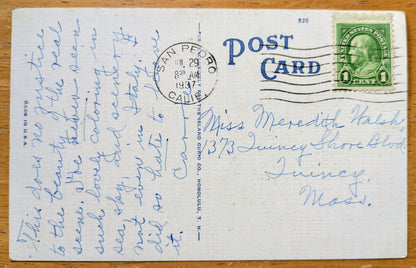 This does no justice
to the beauty of the real
scene. I've never seen
such lovely coloring in
sea, sky, and scenery
not even in Italy. I
did so hate to leave
it.
Carol
MADE IN U.S.A.
THE ISLAND CURIO CO., HONOLULU, T. H.
SAN PEDRO
29
8 30 AM
1937
CALIF.
820
POST
CARD
1
1
Miss Meredith Walsh,
1373 Quincy Shore Blvd.
Quincy,
Mass.